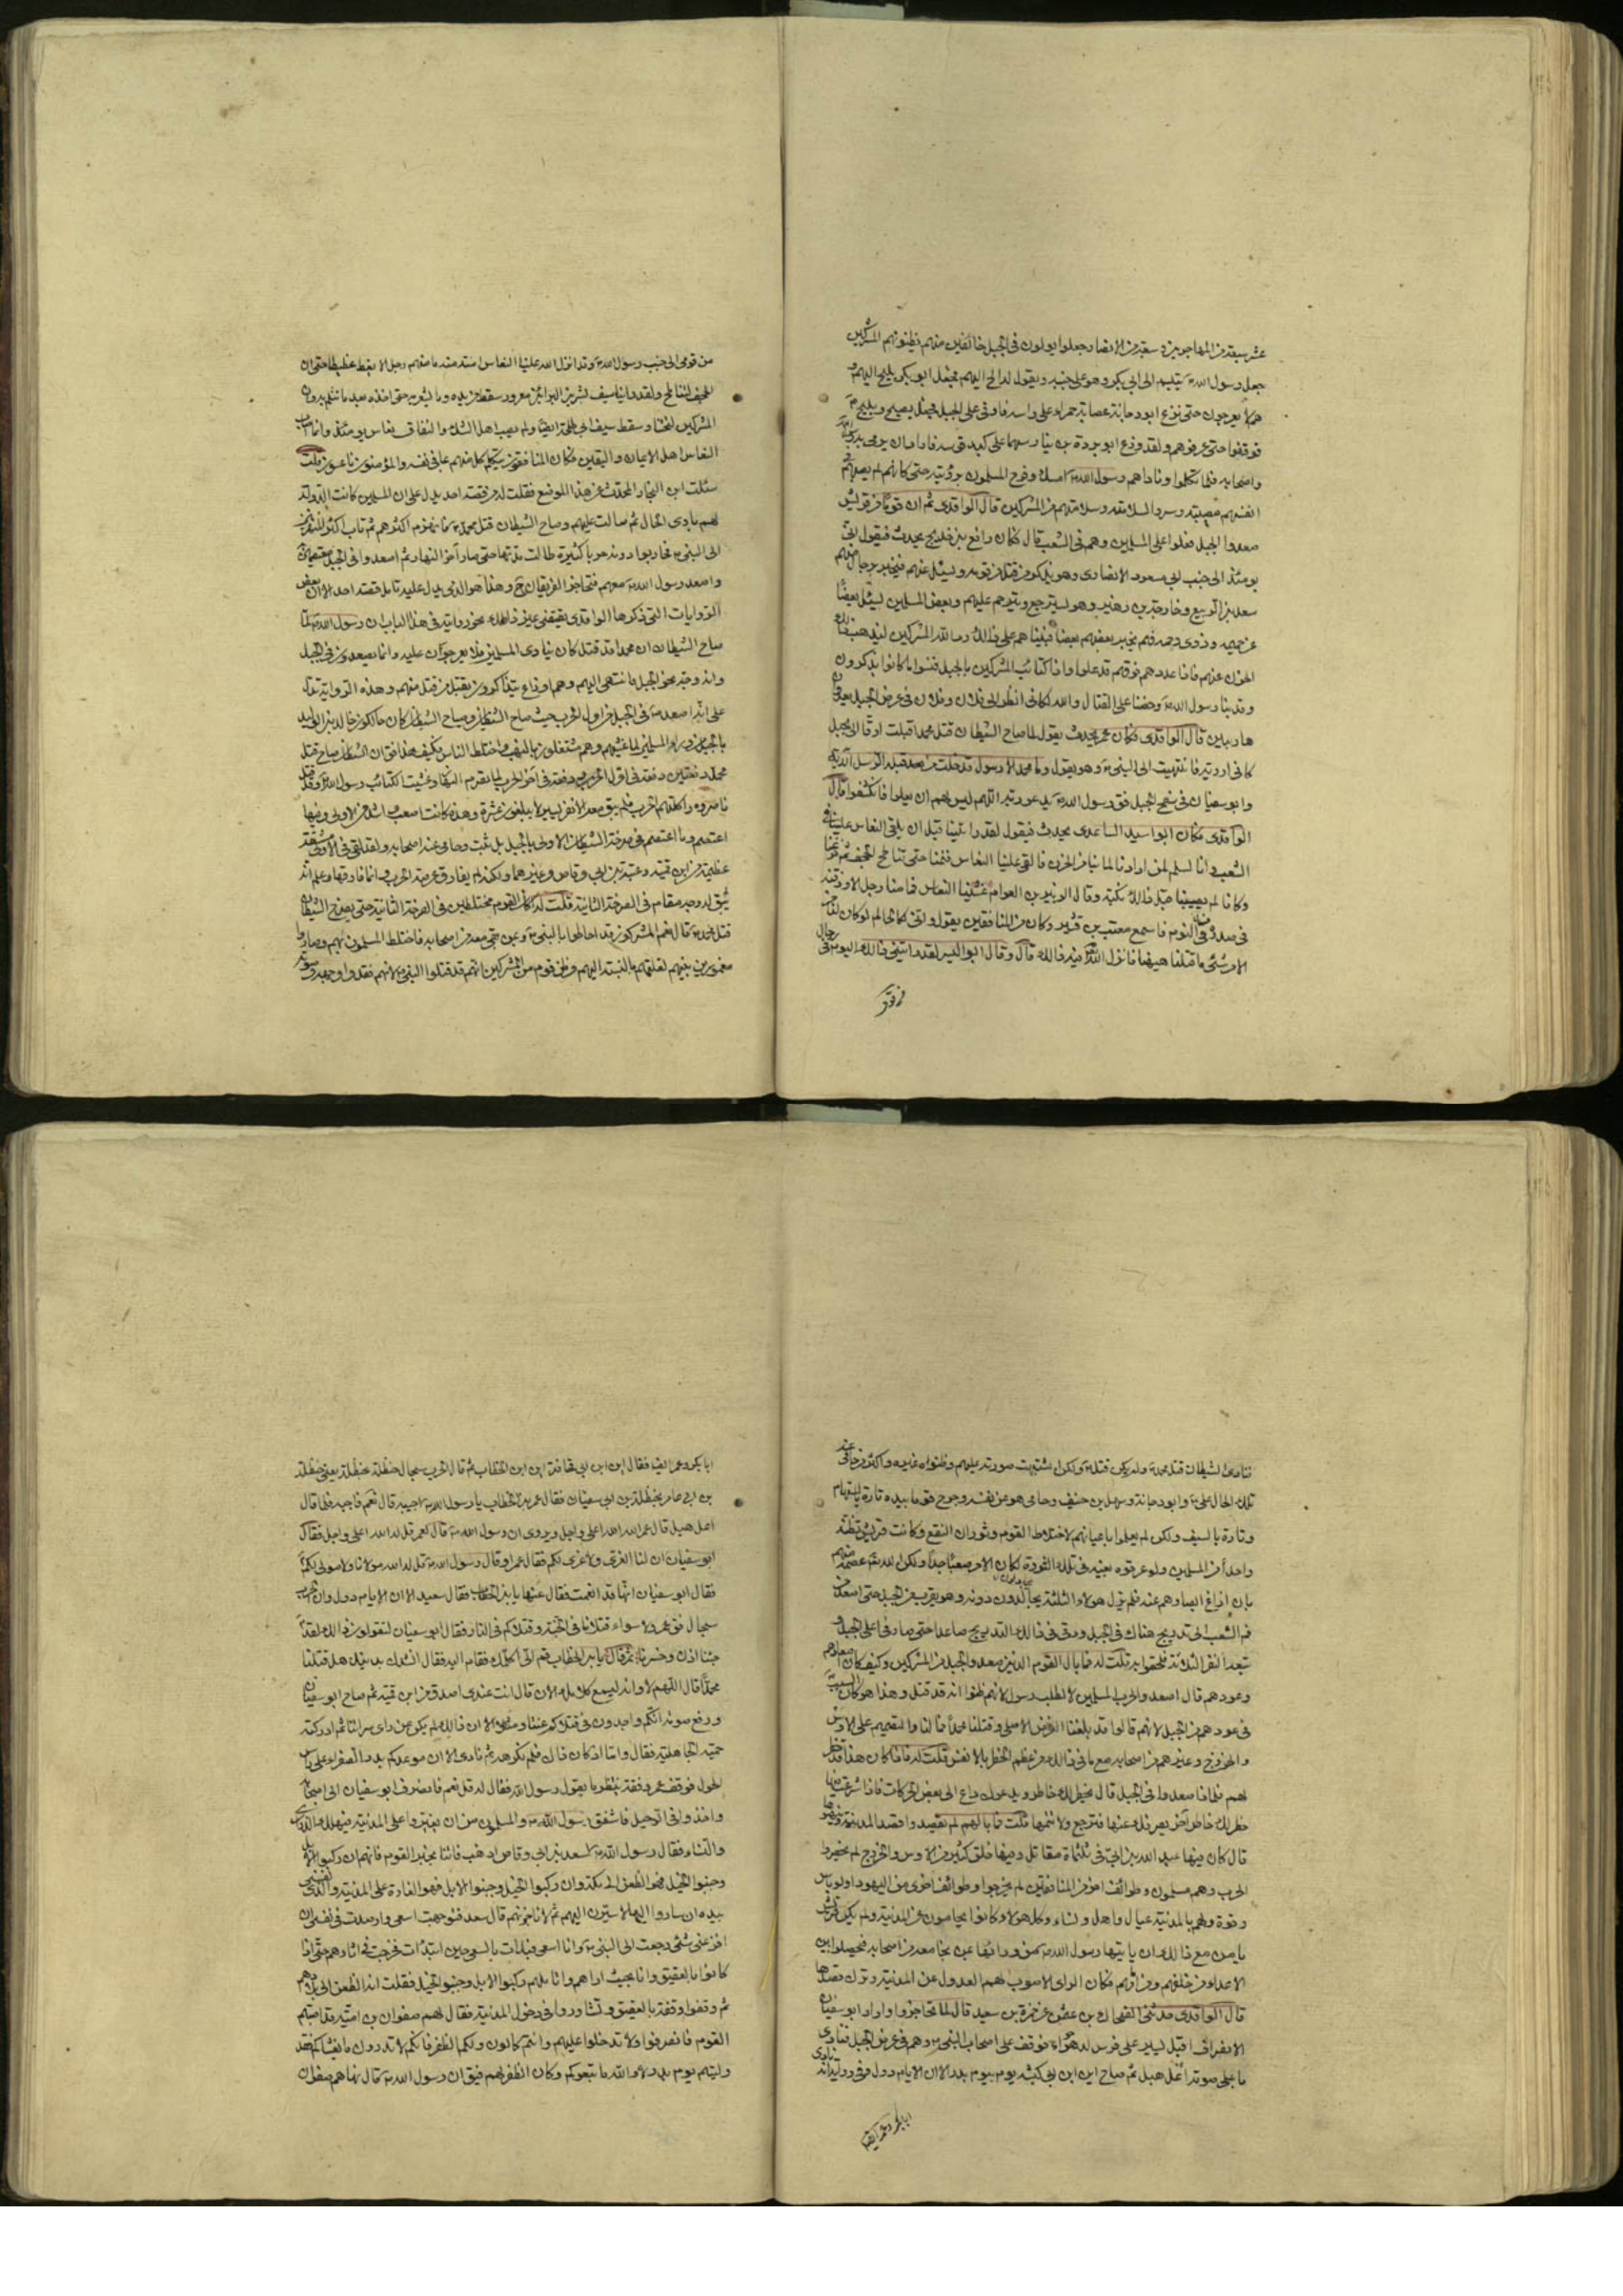 عشر سبعة من المهاجرين وسبعة من الانصار وجعلوا يولون فى الجبل خائفين منهم يظنونهم المشركين
جعل رسول الله يتبسم الى ابى بكر وهو على جنبه ويقول له الح اليهم فجعل ابو بكر يليح اليهم و
هم لا يعرجون حتى نزع ابو دجانة عصابة حمراء على راسه فاوفى على الجبل فجعل يصيح ويليح
فوقفوا حتى عرفوهم ولقد وضع ابو بردة بن نيار سهما على كبد قوسه فاراد ان يرمى به
واصحابه فلما تكلموا وناداهم رسول الله امسك وفرح المسلمون برؤيته حتى كانهم لم يصبهم فى
انفسهم مصيبة وسروا لسلامته وسلامتهم من المشركين قال الواقدى ثم ان قوما من قريش
صعدوا الجبل فعلوا على المسلمين وهم فى الشعب قال فكان رافع بن خديج يحدث فيقول انى
يومئذ الى جنب ابى مسعود الانصارى وهو يذكر من قتل من قومه ويسئل عنهم فيخبر برجال منهم
سعد بن الربيع وخارجة بن زهير وهو يسترجع ويترحم عليهم وبعض المسلمين يسئل بعضا
عن حميمه وذوى رحمه فهم يخبر بعضهم بعضا فبيناهم على ذلك رد الله المشركين ليذهب ذلك
الحزن عنهم فاذا عدوهم فوقهم قد علوا واذا كتائب المشركين بالجبل فنسوا ما كانوا يذكرون
وندبنا رسول الله وحضنا على القتال والله لكانى انظر الى فلان وفلان فى عرض الجبل يعدوان
هاربين قال الواقدى فكان عمر يحدث يقول لما صاح الشيطان قتل محمد اقبلت ارقا الى الجبل
كانى اروية فانتهيت الى النبى وهو يقول وما محمد الا رسول قد خلت من قبله الرسل الآية
وابو سفيان فى سفح الجبل فقال رسول الله يدعو ربه اللهم ليس لهم ان يعلوا فانكشفوا قال
الواقدى فكان ابو اسيد الساعدى يحدث فيقول لقد رايتنا قبل ان يلقى النعاس علينا فى
الشعب وانا لسلم لمن ارادنا لما بنا من الحزن فالقى علينا النعاس فنمنا حتى تناطح الحجف ثم فزعنا
وكانا لم يصبنا قبل ذلك نكبة وقال الزبير بن العوام غشينا النعاس فما منا رجل الا وذقنه
فى صدره من النوم فاسمع معتب بن قشير وكان من المنافقين يقول وانى لكالحالم لو كان لنا من
الامر شئ ما قتلنا هيهنا فانزل الله فيه ذلك قال وقال ابو اليسر لقد رايتنى ذلك اليوم فى رجال
من قومى
من قومى الى جنب رسول الله وقد انزل الله علينا النعاس امنة منه ما منهم رجل الا يغط غطيطا حتى ان
الحجف لتناطح ولقد رايت سيف بشر بن البراء بن معرور سقط من يده وما يشعر به حتى اخذه بعد ما تثلم وان
المشركين لتحتنا وسقط سيف ابى طلحة ايضا ولم يصب اهل الشك والنفاق نعاس يومئذ وانما اصاب
النعاس اهل الايمان واليقين فكان المنافقون يتكلم كل منهم بما فى نفسه والمؤمنون ناعسون قلت
سئلت ابن النجار المحدث عن هذا الموضع فقلت له من قصة احد يدل على ان المسلمين كانت الدولة
لهم بادى الحال ثم صارت عليهم وصاح الشيطان قتل محمد فانهزم اكثرهم ثم ثاب اكثر المنهزمين
الى النبى فحاربوا دونه حربا كثيرة طالت مدتها حتى صار آخر النهار ثم اصعدوا فى الجبل معتصمين به
واصعد رسول الله معهم فتحاجز الفريقان وهذا هو الذى يدل عليه تامل قصة احد الا ان بعض
الروايات التى ذكرها الواقدى يقتضى غير ذلك نحو روايته فى هذا الباب ان رسول الله لما
صاح الشيطان ان محمدا قد قتل كان ينادى المسلمين فلا يعرجون عليه وانما يصعدون فى الجبل
وانه وجه نحو الجبل فانتهى اليهم وهم اوزاع يتذاكرون بقتل من قتل منهم وهذه الرواية تدل
على انه اصعد فى الجبل من اول الحرب حيث صاح الشيطان وصياح الشيطان كان حال كون خالد بن الوليد
بالجبل من وراء المسلمين لما غشيهم وهم مشتغلون بالنهب واختلط الناس فكيف هذا فقال ان الشيطان صاح قتل
محمد دفعتين دفعة فى اول الحرب ودفعة فى آخر الحرب لما تصرم النهار وغشيت الكتائب رسول الله وقد قتل
ناصروه واكلتهم الحرب فلم يبق معه الا نفر يسير لا يبلغون عشرة وهذه كانت اصعب واشد من الاولى وفيها
اعتصم وما اعتصم فى صرخة الشيطان الاولى بالجبل بل ثبت وحامى عنه اصحابه ولقد لقى فى الاولى مشقة
عظيمة من ابن قمية وعتبة بن ابى وقاص وغيرهما ولكنه لم يفارق عرصة الحرب وانما فارقها وعلم انه
لم يبق له وجه مقام فى الصرخة الثانية قلت له فكان القوم مختلطين فى الصرخة الثانية حتى يصرخ الشيطان
قتل محمد قال نعم المشركون قد احاطوا بالنبى وبمن بقى معه من اصحابه فاختلط المسلمون بهم وصاروا
مغمورين بينهم لقلتهم بالنسبة اليهم وظن قوم من المشركين انهم قد قتلوا النبى لانهم فقدوا وجهه وصورته
فنادى الشيطان قتل محمد ولم يكن قتل ولكن اشتبهت صورته عليهم وظنوه غيره واكثر من حامى عنه
تلك الحال على وابو دجانة وسهل بن حنيف وحامى هو عن نفسه وجرح قوما بيده تارة بالسهام
وتارة بالسيف ولكن لم يعلموا باعيانهم لاختلاط القوم وثوران النقع وكانت قريش تظنه
واحدا من المسلمين ولو عرفوه بعينه فى تلك الثورة لكان الامر صعبا جدا ولكن الله عصمه منهم
بان ازاغ ابصارهم عنه فلم يزل هؤلاء الثلثة يجالدون دونه وهو يقرب من الجبل حتى اصعد من
فم الشعب الى تدريج هناك فى الجبل ورقى فى ذلك التدريج صاعدا حتى صار فى اعلى الجبل و
تبعه النفر الثلاثة فلحقوا به قلت له فما بال القوم الذين صعدوا الجبل من المشركين وكيف كان صعودهم
وعودهم قال اصعدوا لحرب المسلمين لا لطلب رسول لانهم ظنوا انه قد قتل وهذا هو كان السبب
فى عودهم من الجبل لانهم قالوا قد بلغنا الغرض الاصلى وقتلنا محمدا فما لنا والتصميم على الاوس
والخزرج وغيرهم من اصحابه مع ما فى ذلك من عظم الخطر بالانفس قلت له فاذا كان هذا قد خطر
لهم فلماذا صعدوا فى الجبل قال يخطر لك خاطر ويدعوك داع الى بعض الحركات فاذا شرعت فيها
خطر لك خاطر آخر يصرفك عنها فترجع ولا تتمها قلت فما بالهم لم يقصدوا قصد المدينة وينهبوها
قال كان فيها عبد الله بن ابى فى ثلثمائة مقاتل وفيها خلق كثير من الاوس والخزرج لم يحضروا
الحرب وهم مسلمون وطوائف اخر من المنافقين لم يخرجوا وطوائف اخرى من اليهود اولو باس
وقوة ولهم بالمدينة عيال واهل ونساء وكل هؤلاء كانوا يحامون عن المدينة ولم يكن قريش
يامن مع ذلك ان ياتيها رسول الله من ورائها بمن يجامعه من اصحابه فيحصلوا بين
الاعداء من خلفهم ومن امامهم فكان الراى الاصوب لهم العدول عن المدينة وترك قصدها
قال الواقدى حدثنى الضحاك بن عثمن عن ضمرة بن سعيد قال لما تحاجزوا واراد ابو سفيان
الانصراف اقبل يسير على فرس له حواء فوقف على اصحاب النبى وهم فى عرض الجبل فنادى
باعلى صوته اعل هبل ثم صاح اين ابن ابى كبشة يوم بيوم بدر الا ان الايام دول وفى رواية انه نادى
ابا بكر وعمر ايضا
ابا بكر وعمر ايضا فقال اين ابن ابى قحافة اين ابن الخطاب ثم قال الحرب سجال حنظلة بحنظلة يعنى حنظلة
بن ابى عامر بحنظلة بن ابى سفيان فقال عمر بن الخطاب يا رسول الله اجيبه قال نعم فاجبه فلما قال
اعل هبل قال عمر الله اعلى واجل ويروى ان رسول الله قال لعمر قل له الله اعلى واجل فقال
ابو سفيان ان لنا العزى ولا عزى لكم فقال عمر او قال رسول الله قل له الله مولانا ولا مولى لكم
فقال ابو سفيان انها قد انعمت فقال عنها يا بن الخطاب فقال سعيد الا ان الايام دول وان الحرب
سجال فقال عمر ولا سواء قتلانا فى الجنة وقتلاكم فى النار فقال ابو سفيان انكم لتقولون ذلك لقد
خبنا اذن وخسرنا ثم قال يا بن الخطاب قم الى اكلمك فقام اليه فقال انشدك بدينك هل قتلنا
محمدا قال اللهم لا وانه ليسمع كلامك الان قال انت عندى اصدق من ابن قمية ثم صاح ابو سفيان
ورفع صوته انكم واجدون فى قتلاكم عيثا ومثلا الا ان ذلك لم يكن عن راى سراتنا ثم ادركته
حمية الجاهلية فقال واما اذ كان ذلك فلم نكرهه ثم نادى الا ان موعدكم بدر الصفراء على راس
الحول فوقف عمر وقفة ينتظر ما يقول رسول الله فقال له قل نعم فانصرف ابو سفيان الى اصحابه
واخذوا فى الرحيل فاشفق رسول الله والمسلمون من ان يغيروا على المدينة فيهلك الذرارى
والنساء فقال رسول الله لسعد بن ابى وقاص اذهب فائتنا بخبر القوم فانهم ان ركبوا الابل
وجنبوا الخيل فهو الظعن الى مكة وان ركبوا الخيل وجنبوا الابل فهو الغارة على المدينة والذى نفسى
بيده ان ساروا اليها لاسيرن اليهم ثم لاناجزنهم قال سعد فتوجهت اسعى وارصدت فى نفسى ان
افزعنى شئ رجعت الى النبى وانا اسعى فبدات بالسعى حين ابتدات فخرجت فى آثارهم حتى اذا
كانوا بالعقيق وانا بحيث اراهم واتاملهم ركبوا الابل وجنبوا الخيل فقلت انه الظعن الى بلادهم
ثم وقفوا وقفة بالعقيق وتشاوروا فى دخول المدينة فقال لهم صفوان بن امية قد اصبتم
القوم فانصرفوا ولا تدخلوا عليهم وانتم كالون ولكم الظفر فانكم لا تدرون ما يغشاكم فقد
وليتم يوم بدر ولا والله ما تبعوكم وكان الظفر لهم فيقال ان رسول الله قال نهاهم صفوان